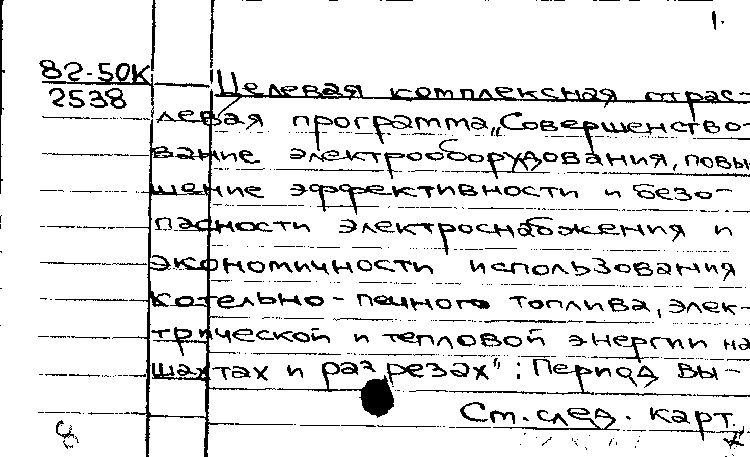 1.
82-50К
2538
Целевая комплексная отрас-
левая программа „Совершенство-
вание электрооборудования, повы
шение эффективности и безо-
пасности электроснабжения и
экономичности использования
котельно-печного топлива, элек-
трической и тепловой энергии на
шахтах и разрезах“: Период вы-
См. след. карт.
8